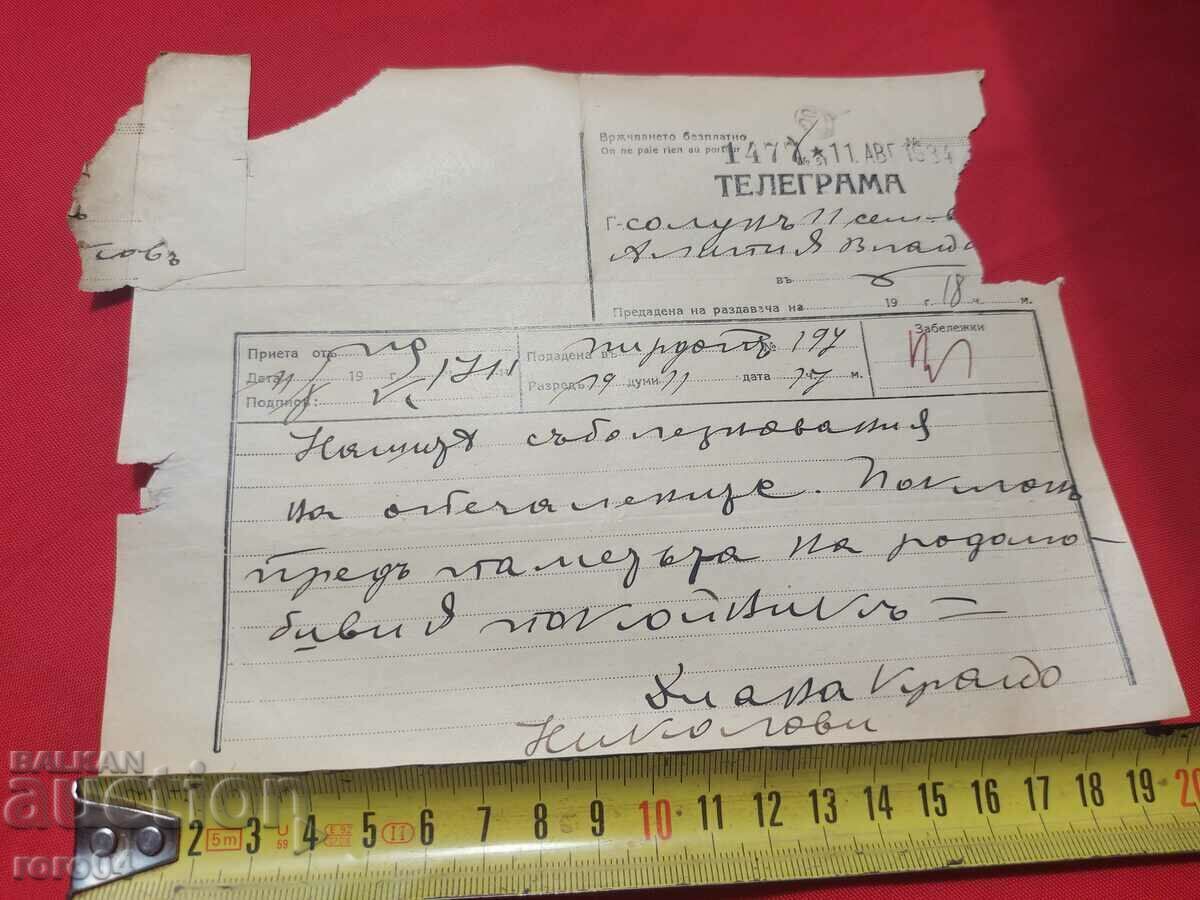 Врѫчването безплатно
On ne paie rien au porteur
1477 * 11. АВГ. 1934
ТЕЛЕГРАМА
Г-солунъ 11 сем
Алипия Влад
ловъ
въ
Предадена на раздавача на 19 г. 18 ч. м.
Приета отъ Подадена въ Пирдопъ № 197 Забележки
Дата 11/ 19 г. 1711 Разредъ 19 думи 11 дата 17 ч. м.
Подпись:
Нашитѣ съболезнования
на опечаленитѣ. Поклонъ
предъ паметьта на родолю-
бивия покойникъ =
Диана Крайо
Николови
BALKAN
auction
roro04
2 5m 3 4 5 II 6 7 8 9 10 11 12 13 14 15 16 17 18 19 20